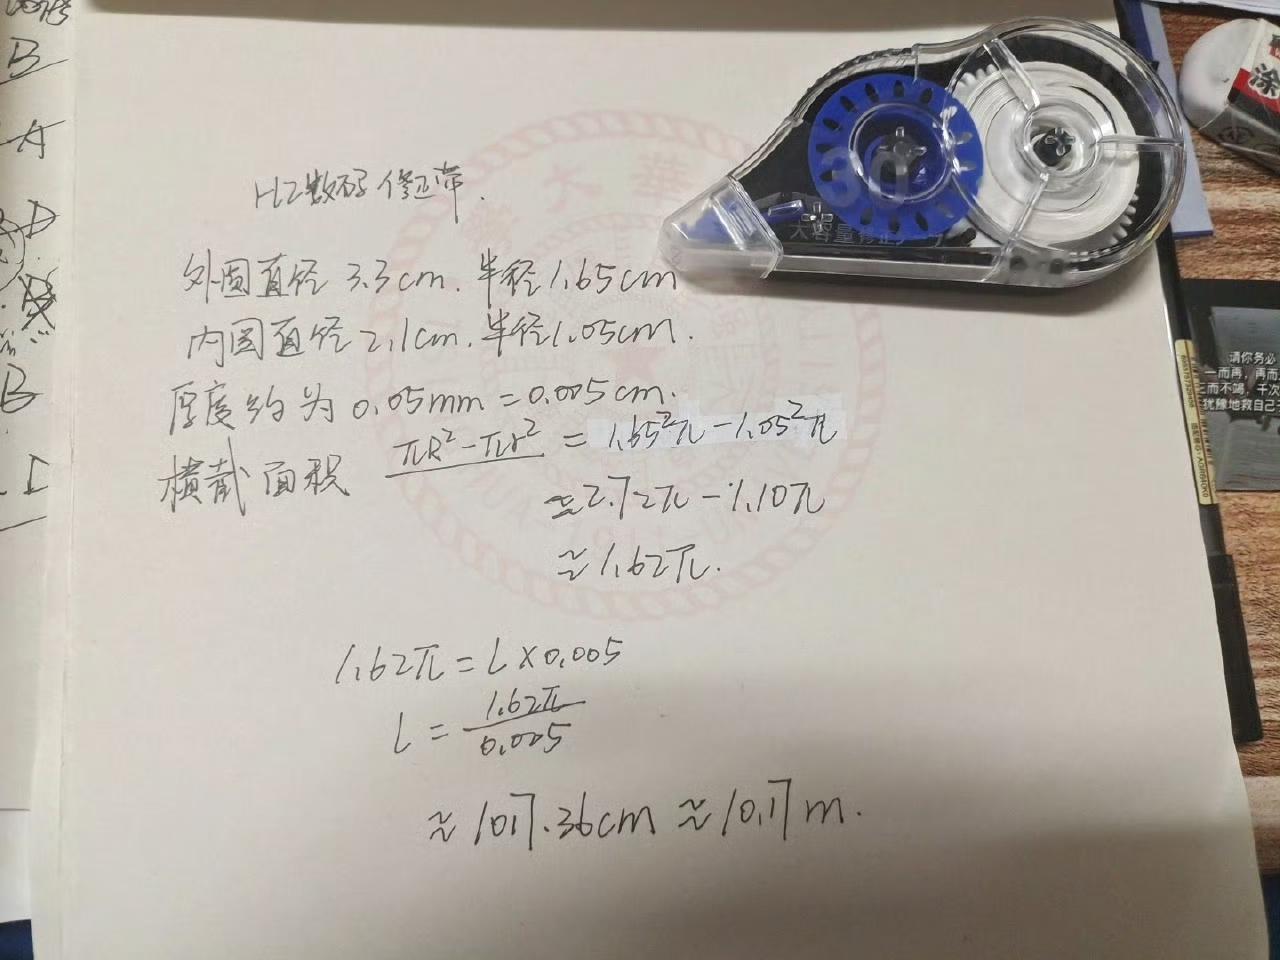 B
A
D
B
I
HZ数码修正带.
外圆直径 3.3cm. 半径1.65cm
内圆直径2.1cm. 半径1.05cm.
厚度约为 0.05mm=0.005cm.
横截面积 πR²-πr² = 1.65²π-1.05²π
≈2.72π-1.10π
≈1.62π.
1.62π=L×0.005
L = 1.62π
0.005
≈1017.36cm ≈10.17m.
30
大容量修正
大華
涂
请你务必
一而再,再而
三而不竭,千次
犹豫地救自己